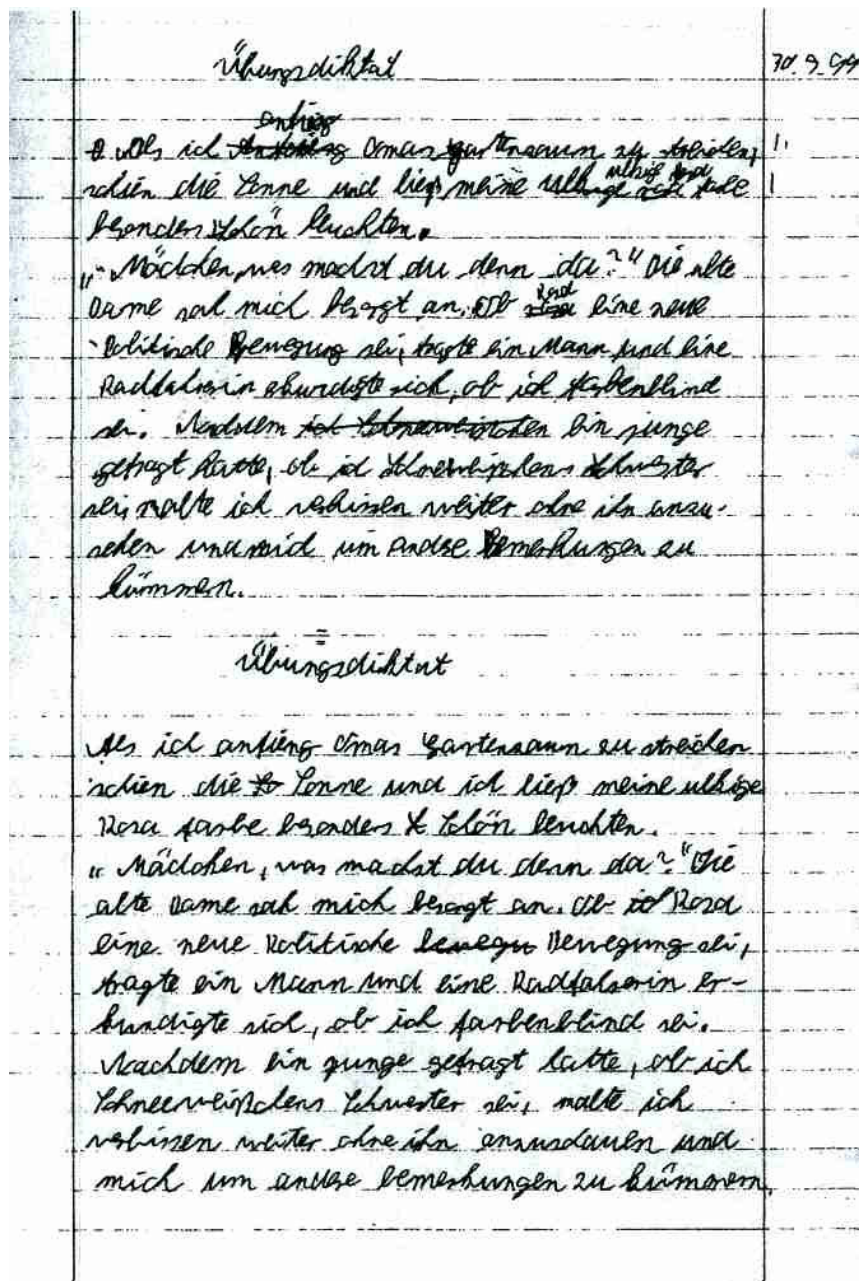 Übungsdiktat 30.9.99
anfing
Als ich Omas Gartenzaun zu streichen, !.
schien die Sonne und ließ meine ulkige rosa Farbe !
besonders Schön leuchten.
"Mädchen, was machst du denn da?" Die alte
Dame sah mich besorgt an. Ob Rosa eine neue
Politische Bewegung sei, fragte ein Mann und eine
Radfahrerin ekundigte sich, ob ich farbenblind
sei. Nachdem ich Schneeweischen ein junge
gefragt hatte, ob ich Schneweißchens Schwester
sei, malte ich verbissen weiter ohne ihn anzu-
sehen und mich um andre Bemerkungen zu
kümmern.
Übungsdiktat
Als ich anfieng Omas Gartenzaun zu streichen
schien die Sonne und ich ließ meine ulkige
Rosa farbe besonders Schön leuchten.
"Mädchen, was machst du denn da?" Die
alte Dame sah mich besorgt an. Ob Rosa
eine neue Politische Bewegung sei,
fragte ein Mann und eine Radfahrerin er-
kundigte sich, ob ich farbenblind sei.
Nachdem ein junge gefragt hatte, ob ich
Schneeweißchens Schwester sei, malte ich
verbissen weiter ohne ihn anzuschauen und
mich um andere bemerkungen zu kümmern.